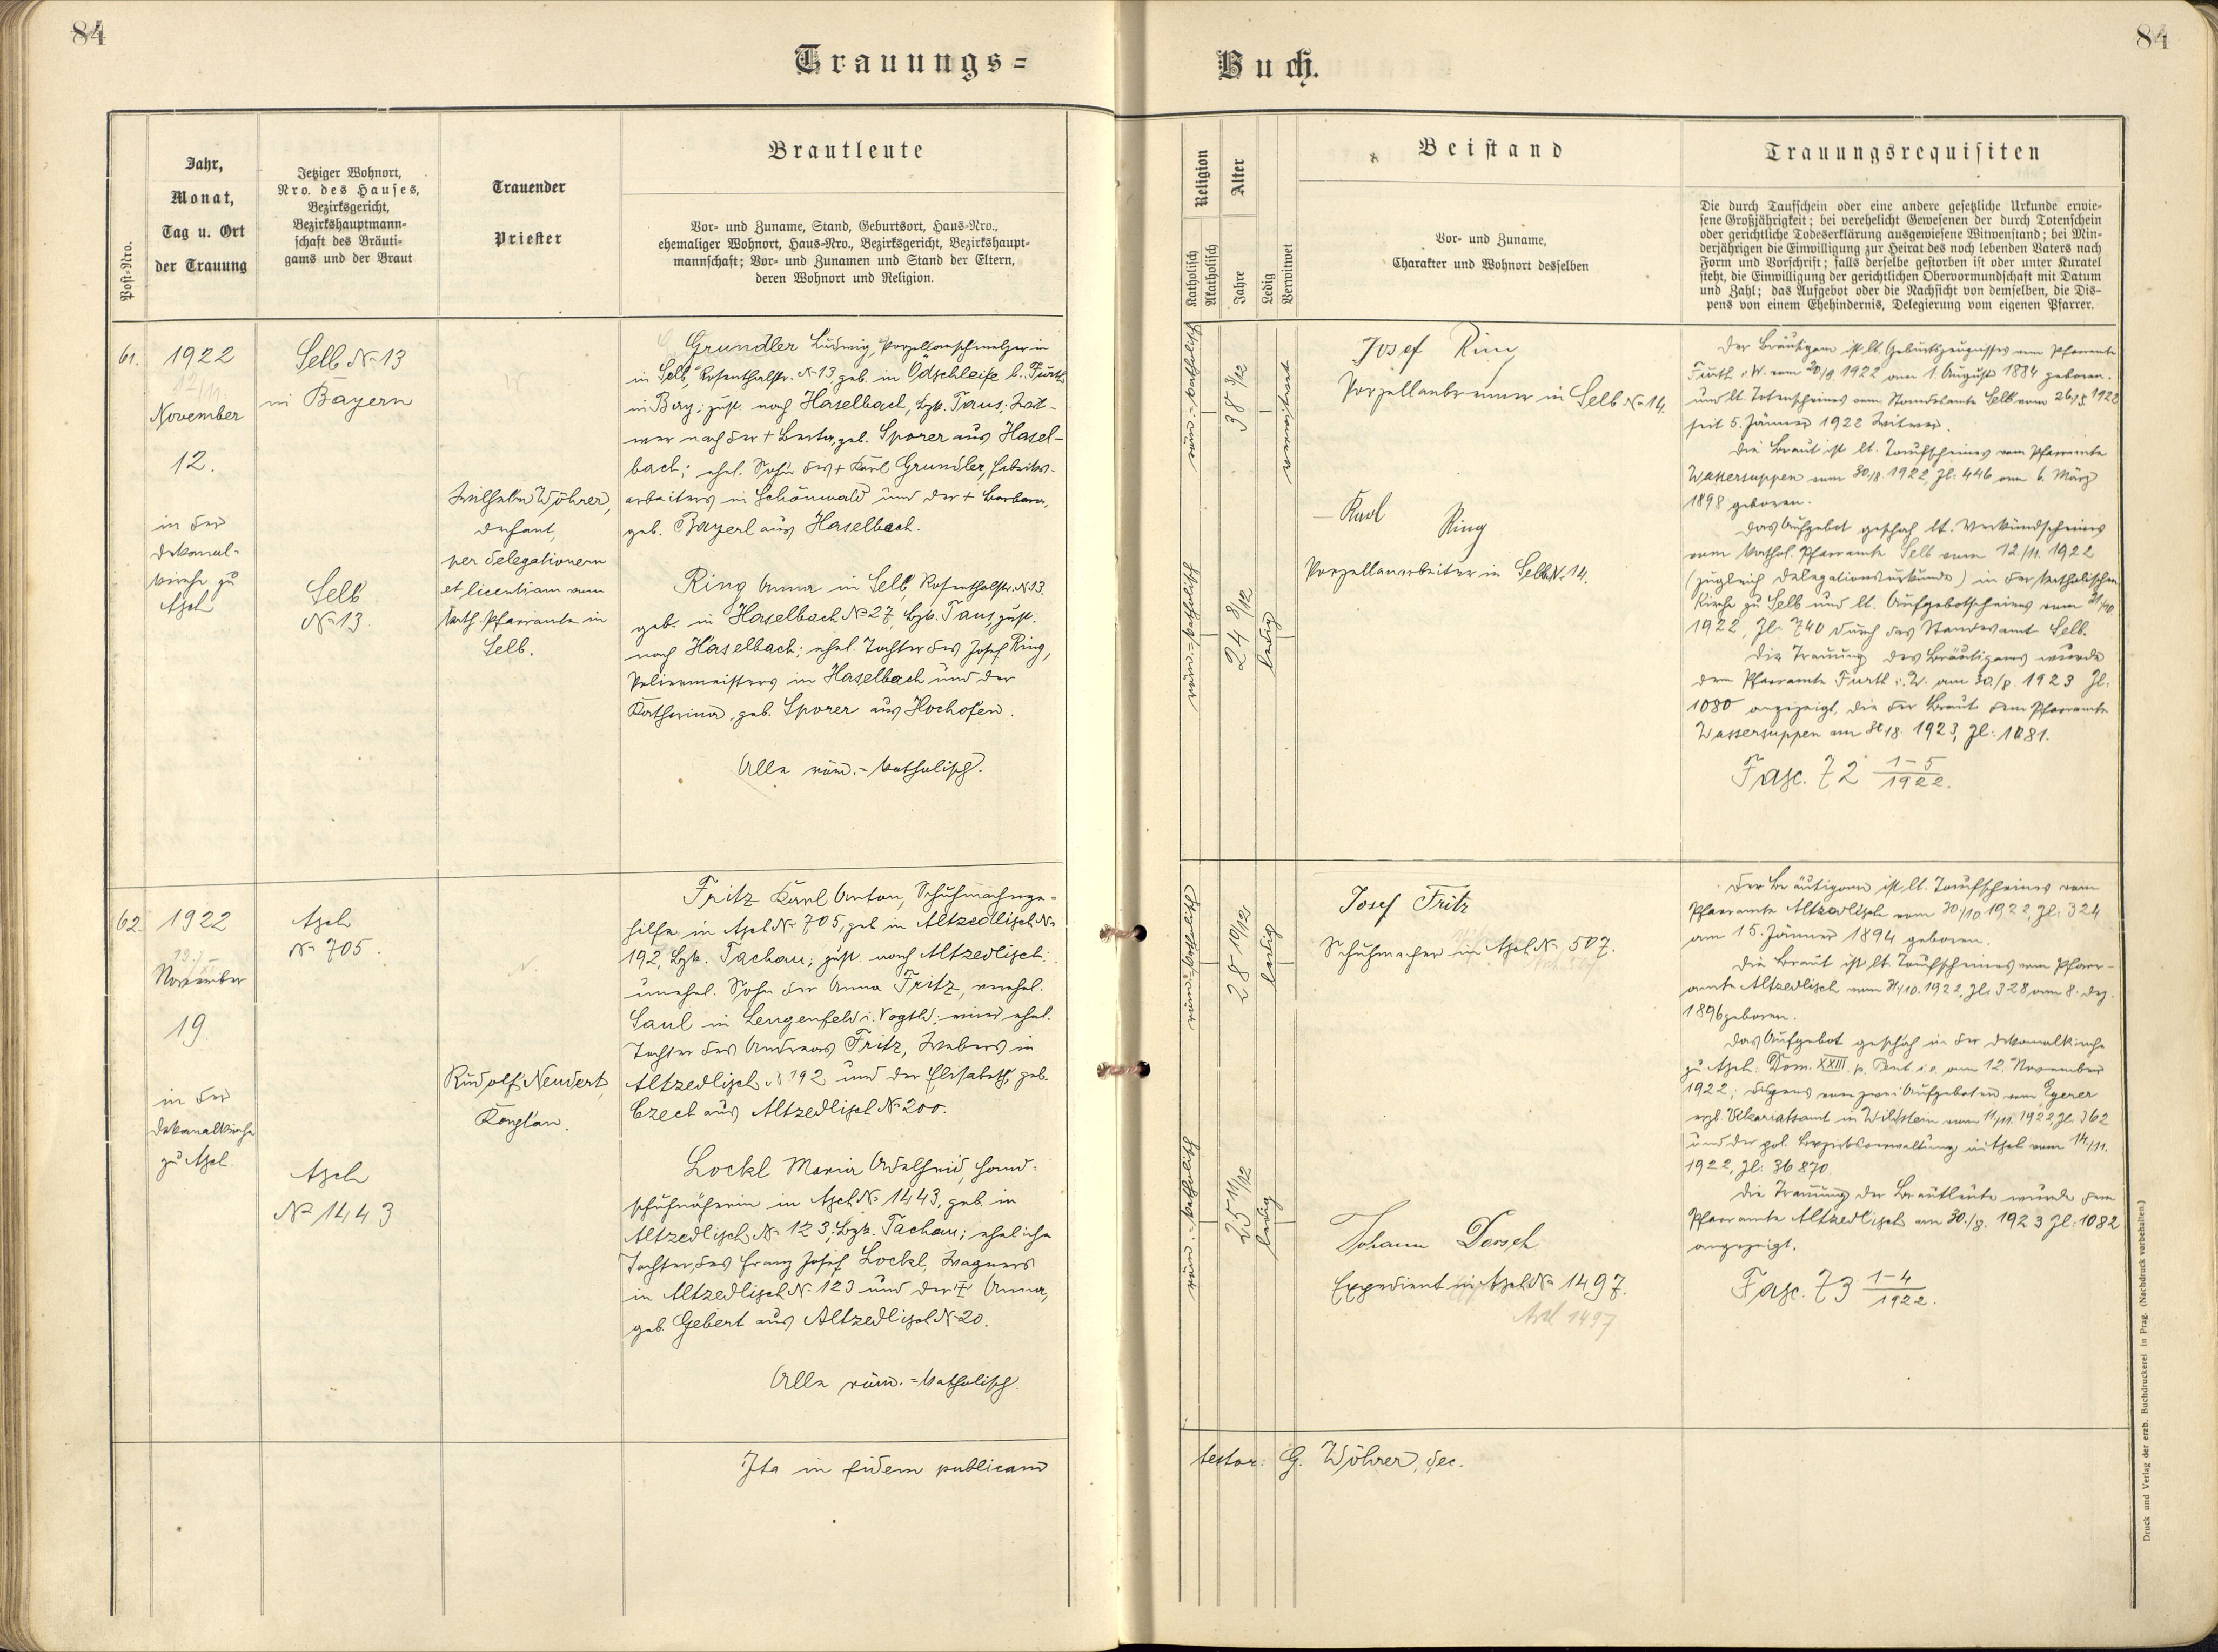 84
84
Trauungs=
Buch.
Post-Nro.
Jahr,
Monat,
Tag u. Ort
der Trauung
Jetziger Wohnort,
Nro. des Hauses,
Bezirksgericht,
Bezirkshauptmann=
schaft des Bräuti=
gams und der Braut
Trauender
Priester
Brautleute
Vor= und Zuname, Stand, Geburtsort, Haus=Nro.,
ehemaliger Wohnort, Haus=Nro., Bezirksgericht, Bezirkshaupt=
mannschaft; Vor= und Zunamen und Stand der Eltern,
deren Wohnort und Religion.
Religion
Katholisch
Akatholisch
Alter
Jahre
Ledig
Verwitwet
Beistand
Vor= und Zuname,
Charakter und Wohnort desselben
Trauungsrequisiten
Die durch Taufschein oder eine andere gesetzliche Urkunde erwie=
sene Großjährigkeit; bei verehelicht Gewesenen der durch Totenschein
oder gerichtliche Todeserklärung ausgewiesene Witwenstand; bei Min=
derjährigen die Einwilligung zur Heirat des noch lebenden Vaters nach
Form und Vorschrift; falls derselbe gestorben ist oder unter Kuratel
steht, die Einwilligung der gerichtlichen Obervormundschaft mit Datum
und Zahl; das Aufgebot oder die Nachsicht von demselben, die Dis=
pens von einem Ehehindernis, Delegierung vom eigenen Pfarrer.
61.
1922
12/11
November
12.
in der
Dekanal-
kirche zu
Asch
Selb No 13
in Bayern
Selb
No 13.
Wilhelm Wöhrer,
Dechant,
per delegationem
et licentiam vom
kath. Pfarramte in
Selb.
Grundler Ludwig, Porzellanschmelzer in
in Selb, Rosenthalstr. No 13 geb. in Ödschleife b. Furth
in Bay; zust. nach Haselbach, Bzk. Taus; Wit-
wer nach der + Berta, geb. Sporer aus Hasel-
bach; ehel. Sohn des + Karl Grundler, Fabriks-
arbeiters in Schönwald und der + Barbara,
geb. Bayerl aus Haselbach.
Ring Anna in Selb, Rosenthalstr. N 13.
geb. in Haselbach No 27, Bzk. Taus, zust.
nach Haselbach; ehel. Tochter des Josef Ring,
Poliermeisters in Haselbach und der
Katharina, geb. Sporer aus Hochofen.
Alle röm.-katholisch.
röm.-katholisch
38 3/12
verwitwet
röm.-katholisch
24 8/12
ledig
Josef Ring
Porzellanbrenner in Selb No 14.
Karl Ring
Porzellanarbeiter in Selb No 14.
Der Bräutigam ist lt. Geburtszeugnisses vom Pfarramte
Furth i. W. vom 20/9. 1922 am 1. August 1884 geboren.
und lt. Totenscheines vom Standesamte Selb vom 26/5. 1922
seit 5. Jänner 1922 Witwer.
Die Braut ist lt. Taufscheines vom Pfarramte
Wassersuppen vom 30/8. 1922, Zl: 446 am 6. März
1898 geboren.
Das Aufgebot geschah lt. Verkündscheines
vom kathol. Pfarramte Selb vom 12./11. 1922
(zugleich Delegationsurkunde) in der katholischen
Kirche zu Selb und lt. Aufgebotscheines vom 21/10
1922, Zl: 740 durch das Standesamt Selb.
Die Trauung des Bräutigams wurde
dem Pfarramte Furth i. W. am 30./8. 1923 Zl:
1080 angezeigt, die der Braut dem Pfarramte
Wassersuppen am 30/8. 1923, Zl: 1081.
Fasc. 72 1-5/1922.
62.
1922
19/11
November
19.
in der
Dekanalkirche
zu Asch.
Asch
No 705.
Asch
No 1443
Rudolf Neudert,
Kaplan.
Fritz Karl Anton, Schuhmacherge=
hilfe in Asch No 705, geb. in Altzedlisch No
192, Bzk. Tachau; zust. nach Altzedlisch;
unehel. Sohn der Anna Fritz, verehel.
Saul in Lengenfeld i. Vogtld; einer ehel.
Tochter des Andreas Fritz, Webers in
Altzedlisch No 192 und der Elisabeth, geb.
Czech aus Altzedlisch No 200.
Lockl Maria Adelheid, Hand=
schuhnäherin in Asch No 1443, geb. in
Altzedlisch No 123, Bzk. Tachau; eheliche
Tochter des Franz Josef Lockl, Wagners
in Altzedlisch No 123 und der + Anna,
geb. Gebert aus Altzedlisch No 20.
Alle röm.=katholisch.
röm.-katholisch
28 10/12
ledig
röm.-katholisch
25 11/12
ledig
Josef Fritz
Schuhmacher in Asch No 507.
Asch 507
Johann Dorsch
Expedient in Asch No 1497.
Asch 1497
Der Bräutigam ist lt. Taufscheines vom
Pfarramte Altzedlisch vom 30/10 1922, Zl: 324
am 15. Jänner 1894 geboren.
Die Braut ist lt. Taufscheines vom Pfarr-
amte Altzedlisch vom 31/10. 1922, Zl: 328 am 8. Dez.
1896 geboren.
Das Aufgebot geschah in der Dekanalkirche
zu Asch: Dom. XXIII. p. Pent. i. e. am 12. November
1922; Dispens von zwei Aufgeboten vom Egerer
erzb. Vikariatsamt in Wildstein vom 11/11. 1922, Zl: 362
und der pol. Bezirksverwaltung in Asch vom 14/11.
1922, Zl: 36 870.
Die Trauung der Brautleute wurde dem
Pfarramte Altzedlisch am 30./8. 1923 Zl: 1082
angezeigt.
Fasc. 73 1-4/1922.
Ita in fidem publicam
testor: G. Wöhrer, dec.
Druck und Verlag der erzb. Buchdruckerei in Prag. (Nachdruck vorbehalten.)